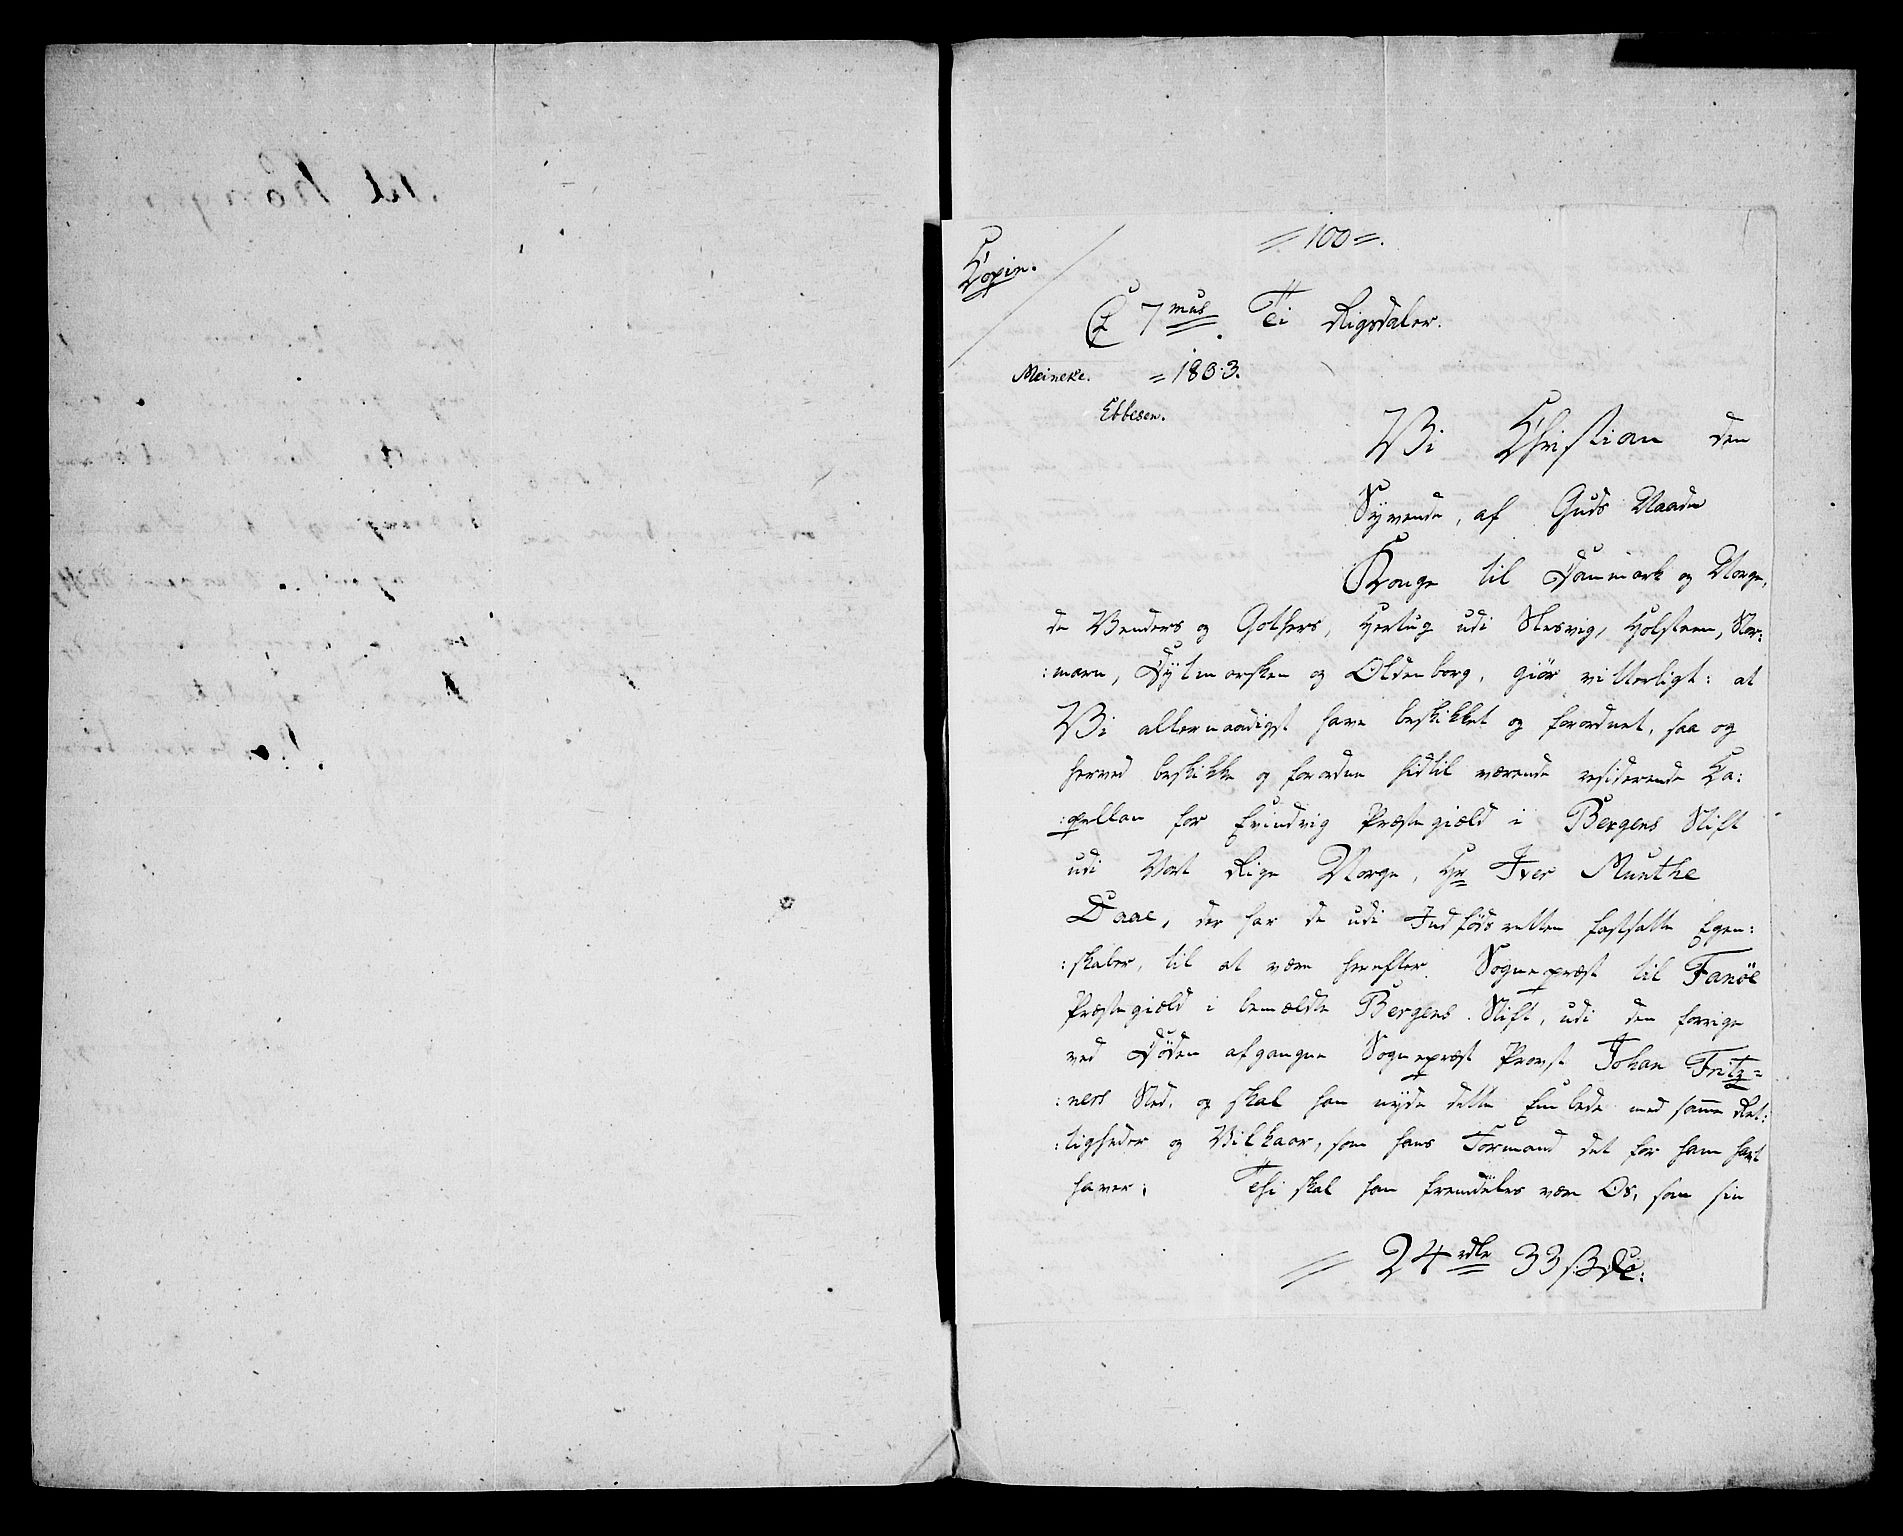 = 100 =.
Copie.
C 7 7mus. Ti Rigsdaler.
Meineke. = 1803.
Ebbesen.
Vi Christian den
Syvende, af Guds Naade
Konge til Danmark og Norge,
de Venders og Gothers, Hertug udi Slesvig, Holsteen, Stor:
:marn, Dytmarsken og Oldenborg, giør vitterligt: at
Vi allernaadigst have beskikket og forordnet, saa og
herved beskikke og forordne hidtil værende residerende Ca:
:pellan for Evindvig Præstegield i Bergens Stift
udi Vort Rige Norge, Hr Iver Munthe
Daae, der har de udi Indfødsretten fastsatte Egen:
:skaber, til at være herefter Sognepræst til Fanöe
Præstegield i bemældte Bergens Stift, udi den forrige
ved Døden afgangne Sognepræst Provst Johan Fritz=
:ners Sted, og skal han nyde dette Embede med samme Ret:
:tigheder og Vilkaar, som hans Formand det for ham havt
haver; Thi skal han fremdeles være Os, som sin
= 24 rdlr 33 ß